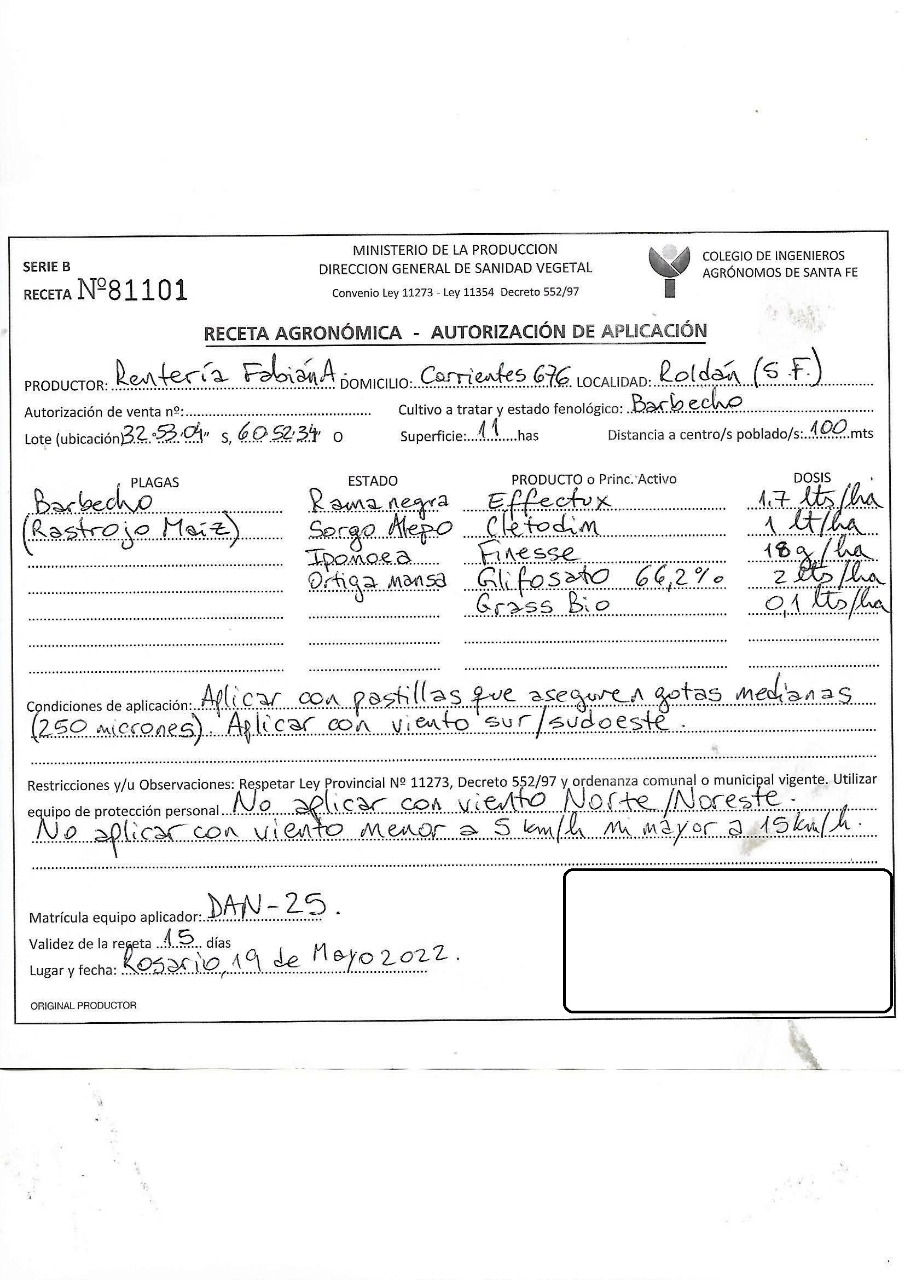 MINISTERIO DE LA PRODUCCION
DIRECCION GENERAL DE SANIDAD VEGETAL
Convenio Ley 11273 - Ley 11354 Decreto 552/97
SERIE B
RECETA Nº81101
COLEGIO DE INGENIEROS
AGRÓNOMOS DE SANTA FE
RECETA AGRONÓMICA - AUTORIZACIÓN DE APLICACIÓN
PRODUCTOR: Rentería Fabián A. DOMICILIO: Corrientes 676 LOCALIDAD: Roldán (S.F.)
Autorización de venta nº: Cultivo a tratar y estado fenológico: Barbecho
Lote (ubicación) 32°53'04" S, 60°52'34" O Superficie: 11 has Distancia a centro/s poblado/s: 100 mts
PLAGAS ESTADO PRODUCTO o Princ. Activo DOSIS
Barbecho Rama negra Effectux 1.7 lts/ha
(Rastrojo Maíz) Sorgo Alepo Cletodim 1 lt/ha
Iponoea Finesse 18g/ha
Ortiga mansa Glifosato 66,2% 2 lts/ha
Grass Bio 0,1 lts/ha
Condiciones de aplicación: Aplicar con pastillas que aseguren gotas medianas
(250 micrones). Aplicar con viento sur/sudoeste.
Restricciones y/u Observaciones: Respetar Ley Provincial Nº 11273, Decreto 552/97 y ordenanza comunal o municipal vigente. Utilizar
equipo de protección personal. No aplicar con viento Norte/Noreste.
No aplicar con viento menor a 5 km/h ni mayor a 15km/h.
Matrícula equipo aplicador: DAN-25.
Validez de la receta 15 días
Lugar y fecha: Rosario, 19 de Mayo 2022.
ORIGINAL PRODUCTOR